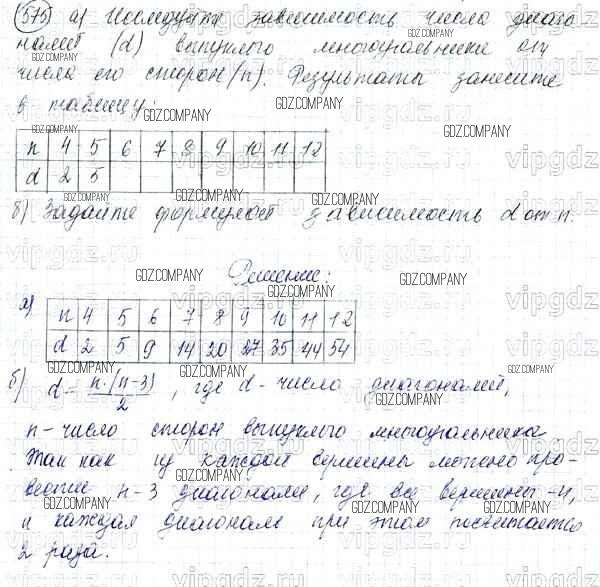 575 а) Исследуйте зависимость числа диаго
налей (d) выпуклого многоугольника от
числа его сторон (n). Результаты занесите
в таблицу:
n 4 5 6 7 8 9 10 11 12
d 2 5
б) Задайте формулой зависимость d от n.
Решение:
а) n 4 5 6 7 8 9 10 11 12
d 2 5 9 14 20 27 35 44 54
б) d = n·(n-3)/2, где d - число диагоналей,
n - число сторон выпуклого многоугольника
Так как из каждой вершины можно про-
вести n-3 диагонали, где все вершины - n,
и каждая диагональ при этом посчитается
2 раза.
GDZ.COMPANY
vipgdz.ru